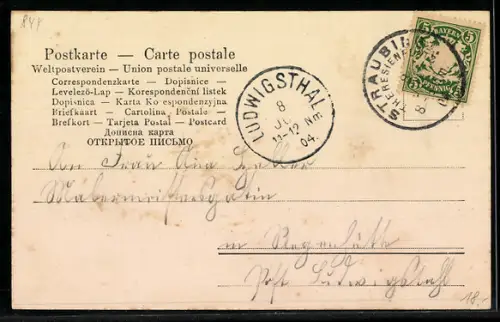 844
Postkarte — Carte postale
Weltpostverein - Union postale universelle
Correspondenzkarte - Dopisnice -
Levelező-Lap - Korespondenční listek
Dopisnica - Karta Ko espondenzyjna -
Briefkaart - Cartolina Postale -
Brefkort - Tarjeta Postal - Postcard
Дописна карта
ОТКРЫТОЕ ПИСЬМО
LUDWIGSTHAL
8
11-12 Nm
04.
STRAUBING
THERESIEN
5 BAYERN 5
PFENNIG
An Frau Heller
Malermeistersgattin
in Regenhütte
Post Ludwigsthal
18.-